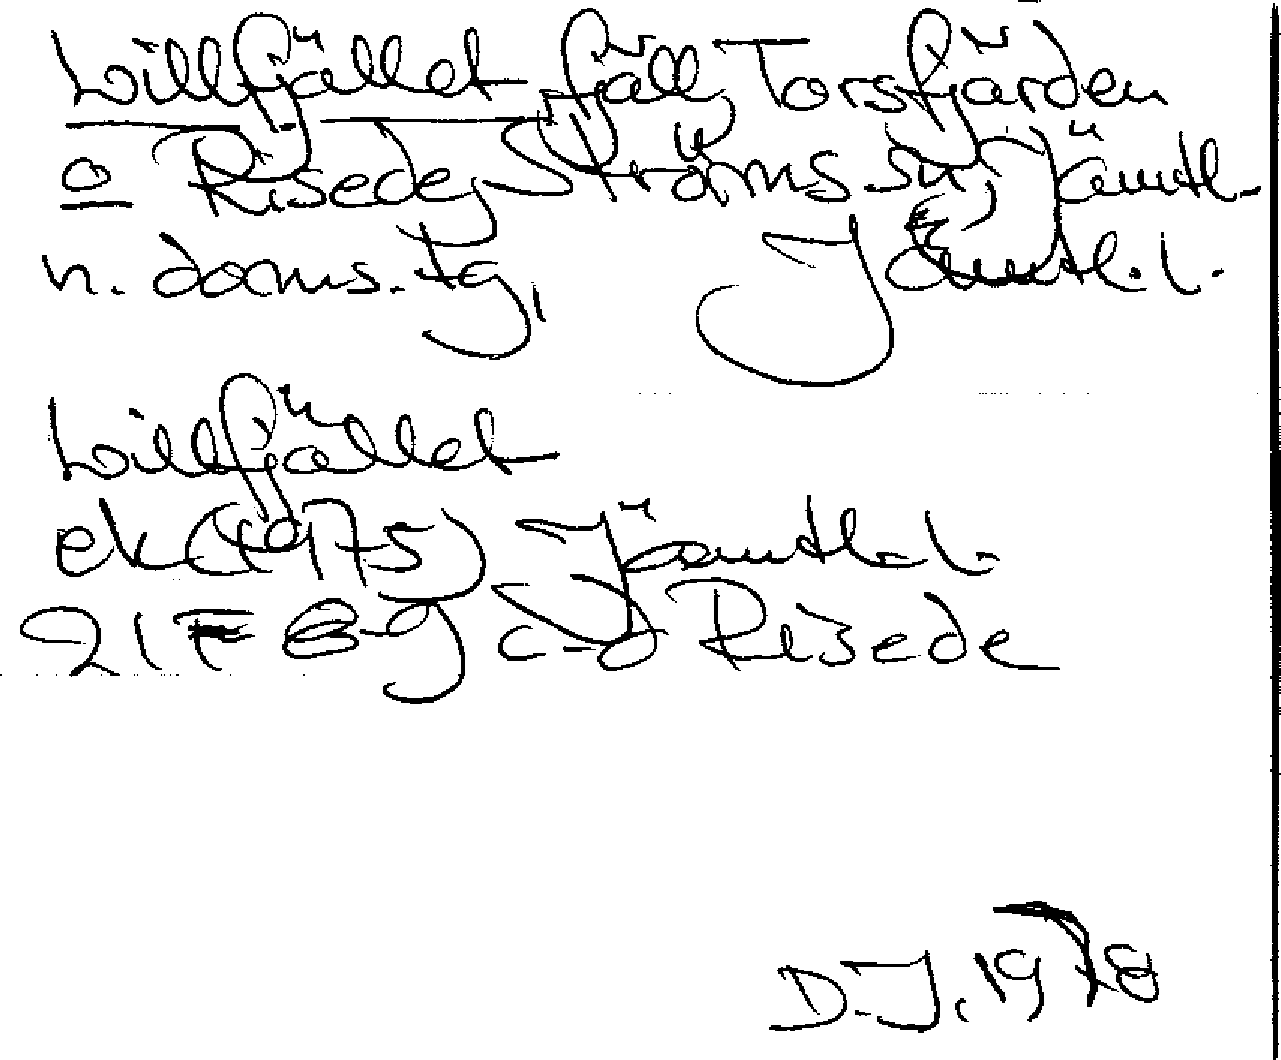 Lillfjället, fjäll, Torsfjärden
o Risede, Ströms sn, Jämtl.
n. doms. tg, Jämtl. l.
Lillfjället
ek (1975) Jämtl. l.
21 F 8-9 c-d Risede
D.J. 1978